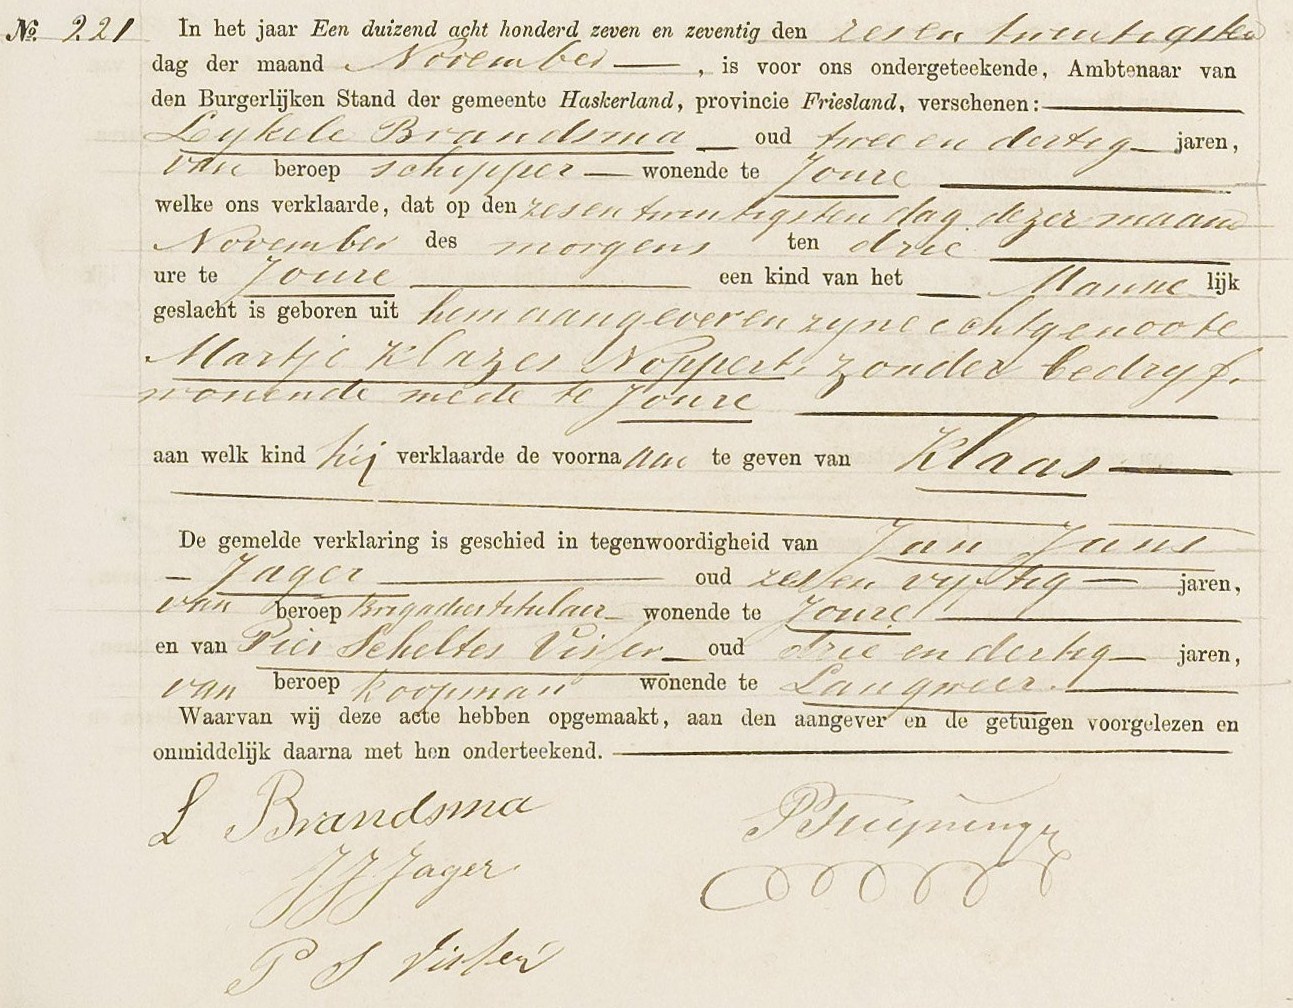 No. 221 In het jaar Een duizend acht honderd zeven en zeventig den zes en twintigsten
dag der maand November, is voor ons ondergeteekende, Ambtenaar van
den Burgerlijken Stand der gemeente Haskerland, provincie Friesland, verschenen:
Lykele Brandsma oud twee en dertig jaren,
van beroep schipper wonende te Joure
welke ons verklaarde, dat op den zes en twintigsten dag dezer maand
November des morgens ten drie
ure te Joure een kind van het Manne lijk
geslacht is geboren uit hem aangever en zyne echtgenoote
Martje Klazes Noppert, zonder bedryf,
wonende mede te Joure
aan welk kind hij verklaarde de voorna am te geven van Klaas
De gemelde verklaring is geschied in tegenwoordigheid van Jan Jans
Jager oud zes en vyftig jaren,
van beroep Brigadier titulair wonende te Joure
en van Pier Scheltes Visser oud drie en dertig jaren,
van beroep koopman wonende te Langweer.
Waarvan wij deze acte hebben opgemaakt, aan den aangever en de getuigen voorgelezen en
onmiddelijk daarna met hen onderteekend.
L Brandsma
JJ Jager
P S Visser